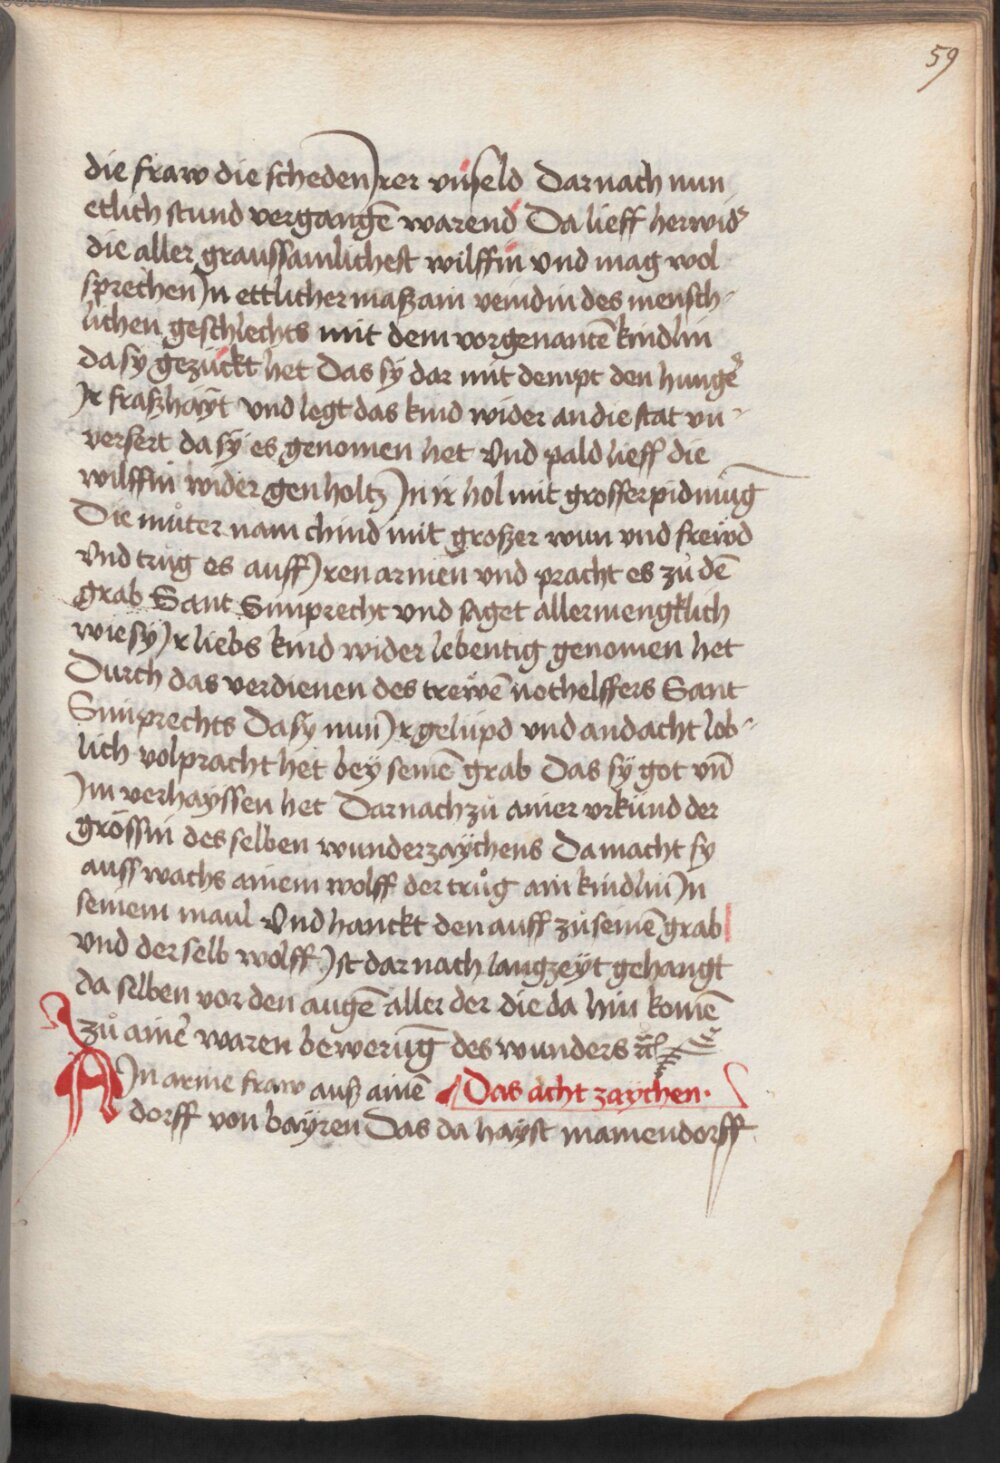 59
die fraw die scheden Irer vnseld Darnach nun
etlich stund vergangē warend Da lieff herwid᷑
die aller graussamlichest wilffin vnd mag wol
sprechen In ettlicher maß ain veindin des mensch-
lichen geschlechts mit dem vorgenantē kindlin
da sy gezückt het Das sy dar mit dempt den hunge᷑
Ir fraßhäyt vnd legt das kind wider an die stat vn-
versert da sy es genomen het Vnd pald lieff die
wilffin wider gen holtz In ir hol mit grosser pidmūg
Die můter nam chind mit großer wun vnd frewd
Vnd trug es auff Iren armen vnd pracht es zů dē
grab Sant Simprecht vnd saget allermengklich
wie sy Ir liebs kind wider lebentig genomen het
Durch das verdienen des trewē nothelffers Sant
Simprechts Da sy nun Ir gelüpd vnd andacht lob-
lich volpracht het bey seinē grab Das sy got vn̄
Im verhayssen het Darnach zů ainer vrkünd der
grössin des selben wunderzaychens Da macht sy
auss wachs ainem wolff der trůg ain kindlin In
seinem maul Vnd hanckt den auff zů seinē grab
vnd der selb wolff Ist dar nach lang zeyt gehangt
da selben vor den augē aller der die da hin komē
zů aine᷑ waren bewerūg des wunders
AIn arme fraw auß ainē Das acht zaychen.
dorff von bayren Das da hayst mamendorff